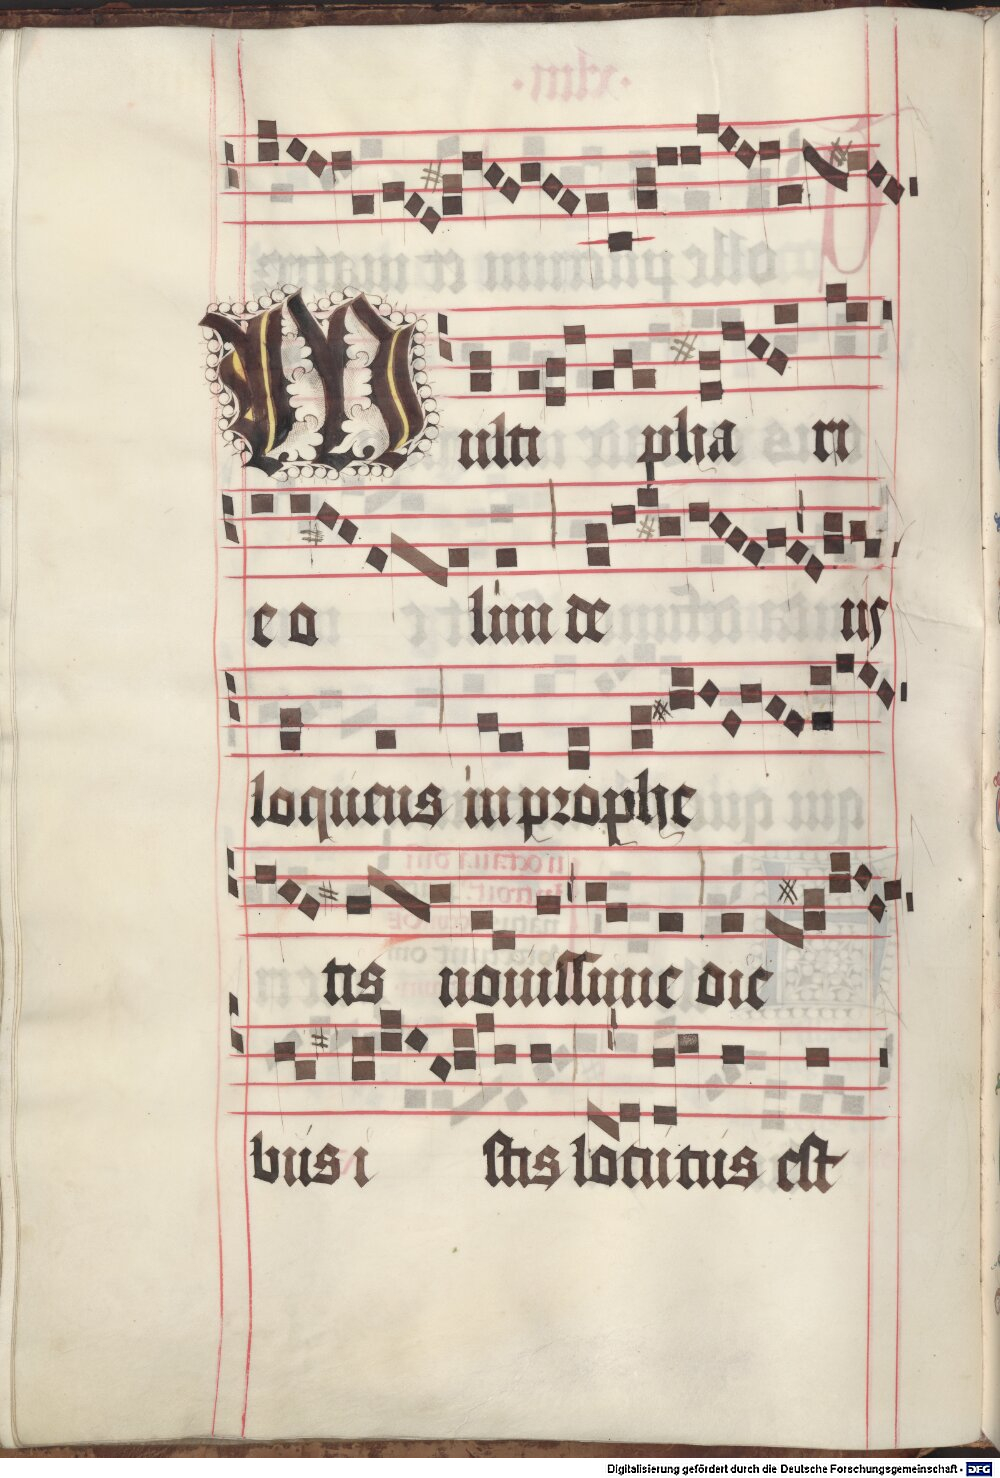 Multi pha ri
e o lim de us
loquens in prophe
tis novissime die
bus i stis locutus est
Digitalisierung gefördert durch die Deutsche Forschungsgemeinschaft - DFG